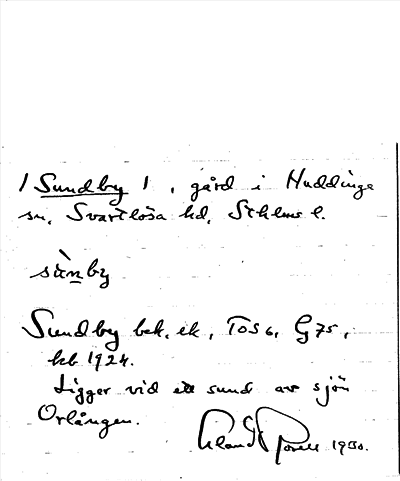 / Sundby /, gård i Huddinge
sn, Svartlösa hd, Sthlms l.
sùnby
Sundby bek. ek, TOS 6, G75,
kb 1924.
Ligger vid ett sund av sjön
Orlången.
1930.